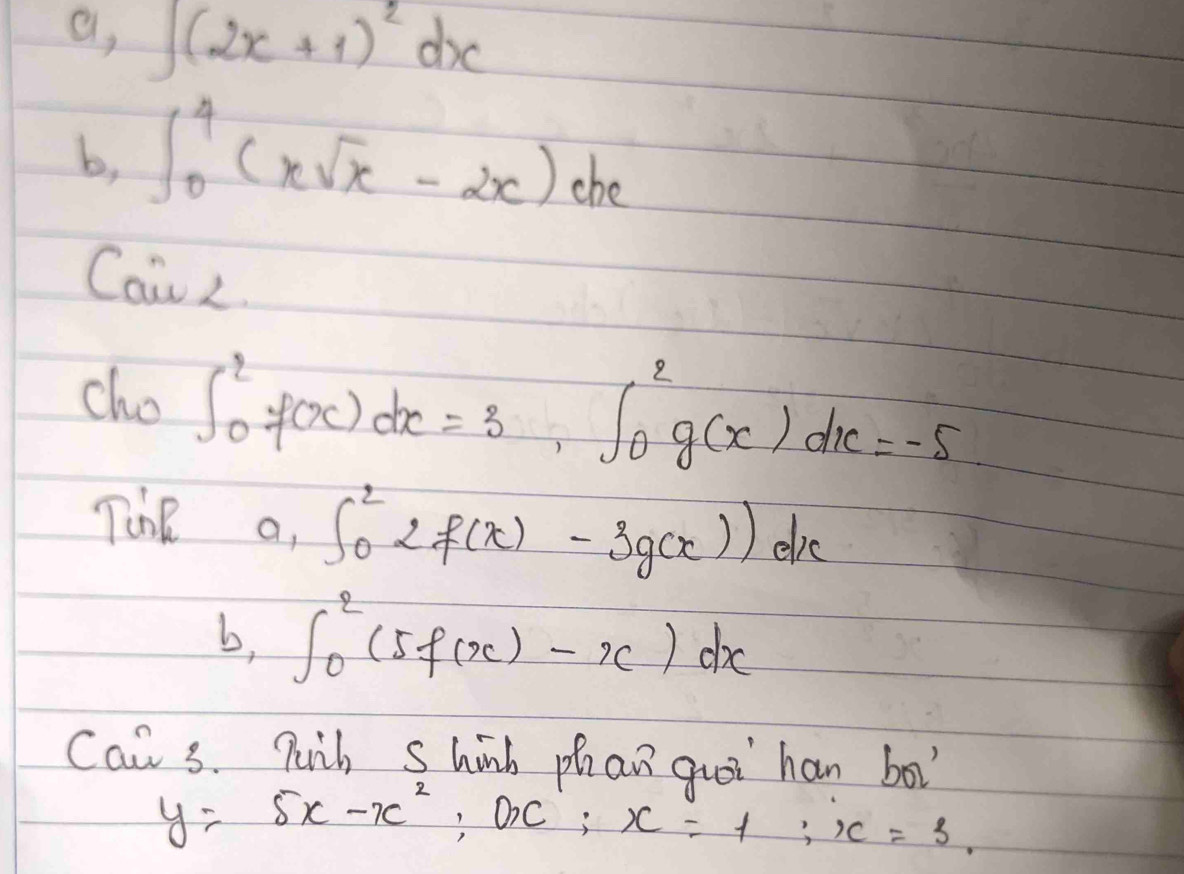 a, ∫(2x + 1)² dx
b, ∫₀⁴ (x√x - 2x) dx
Câu 2.
Cho ∫₀² f(x) dx = 3, ∫₀² g(x) dx = -5.
Tính a, ∫₀² 2f(x) - 3g(x)) dx
b, ∫₀² (5f(x) - x) dx
Câu 3. Tính S hình phẳng giới hạn bởi
y = 5x - x²; Ox; x = 1; x = 3.